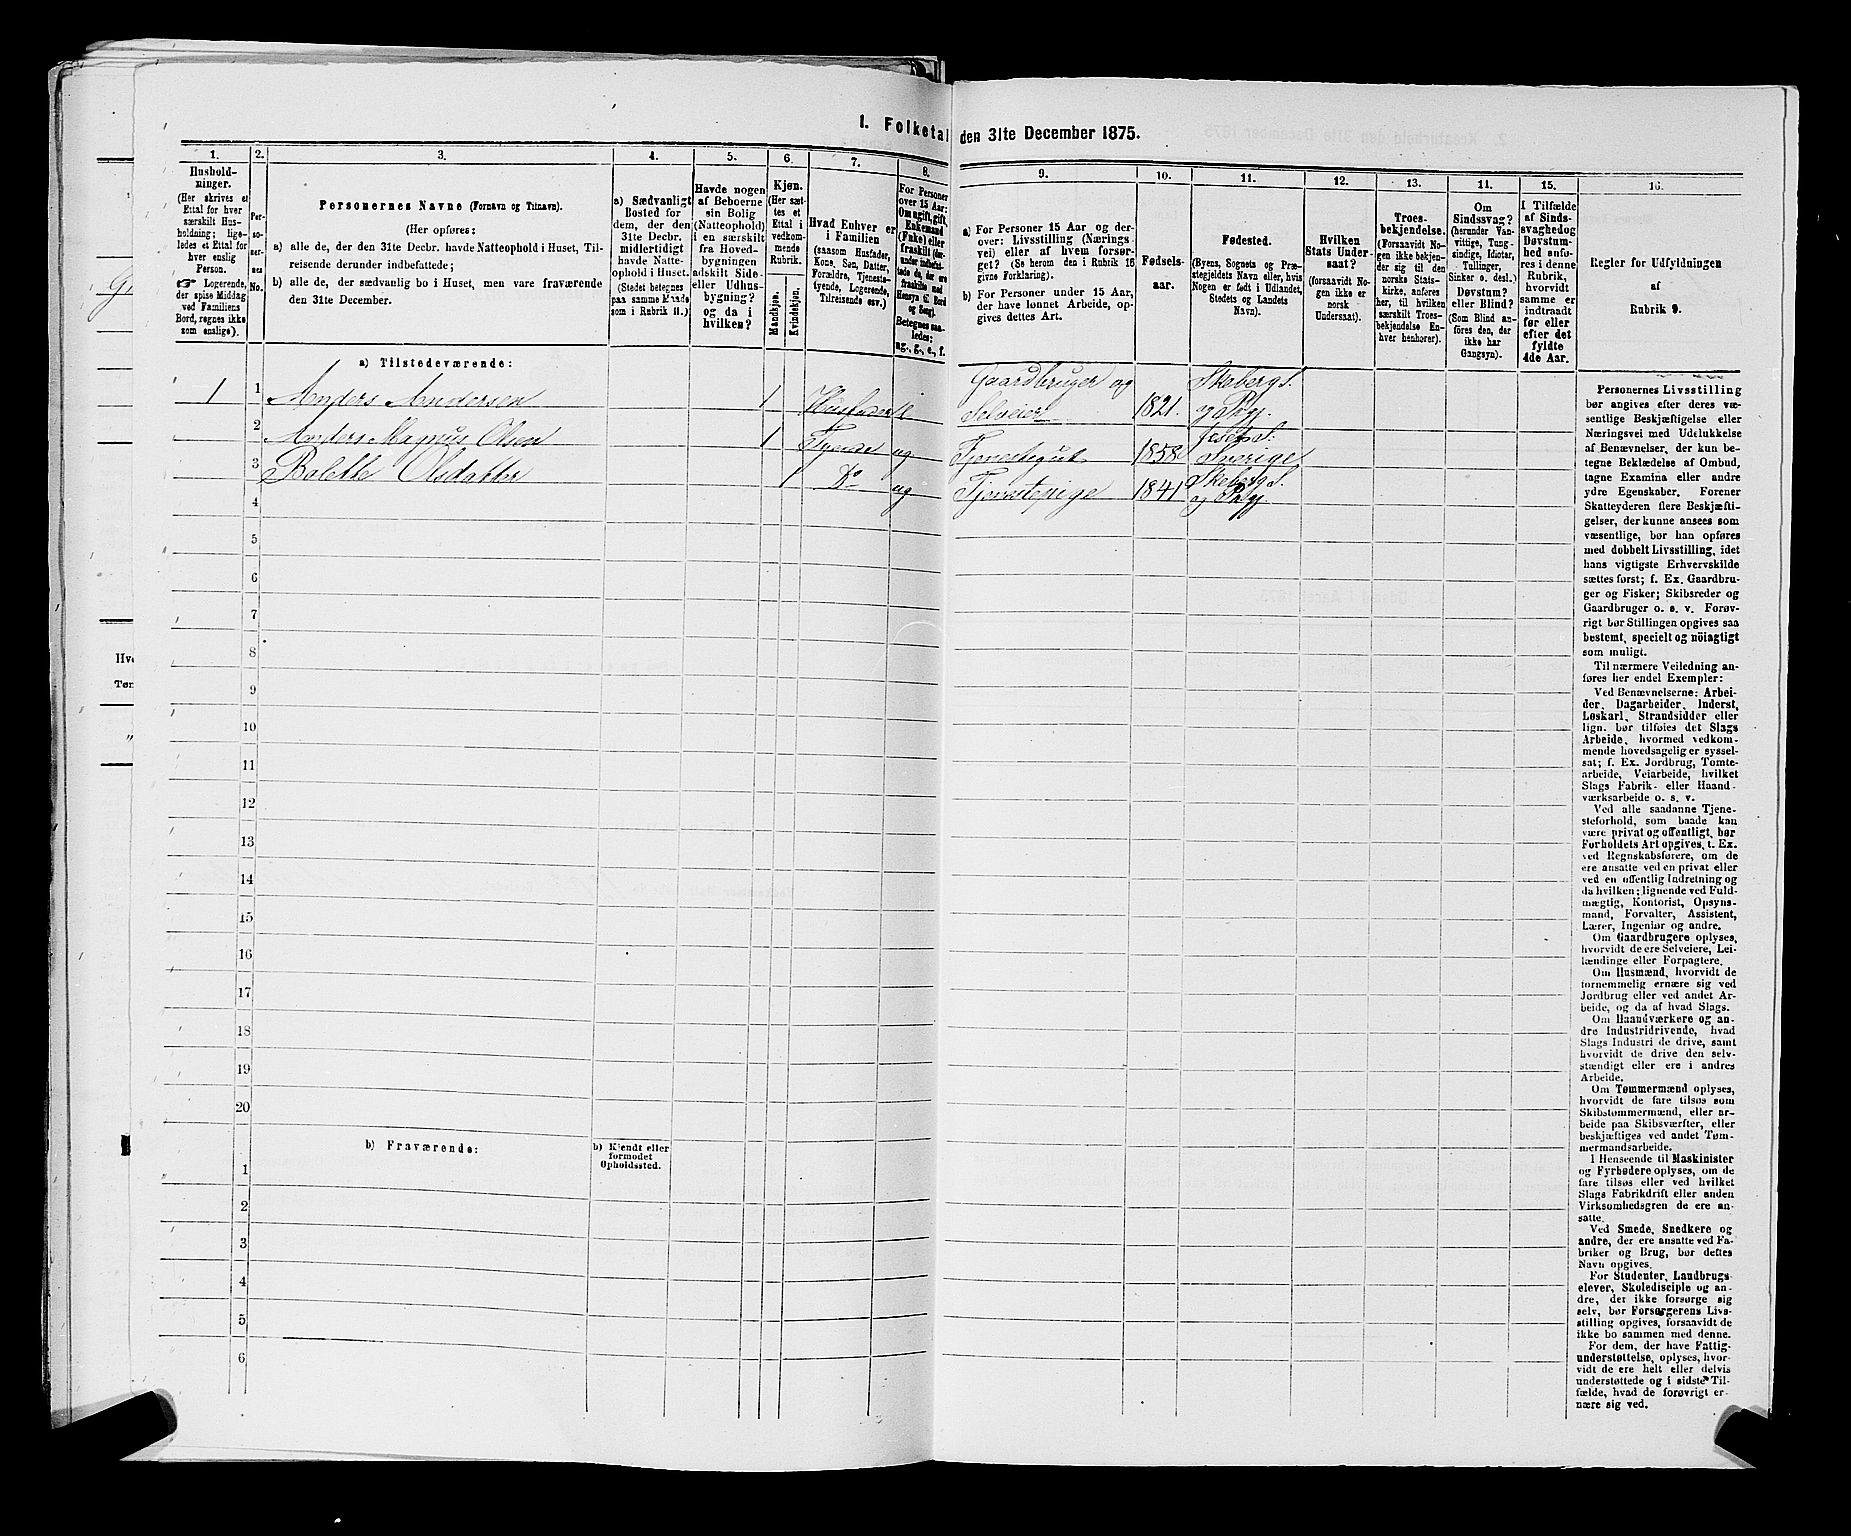 I. Folketal den 31te December 1875.
1. 2. 3. 4. 5. 6. 7. 8. 9. 10. 11. 12. 13. 14. 15. 16.
Husholdninger.
(Her skrives et
Ettal for hver
særskilt Husholdning; ligeledes et Ettal for
hver enslig
Person.
☛ Logerende,
der spise Middag
ved Familiens
Bord, regnes ikke
som enslige).
Personernes No.
Personernes Navne (Fornavn og Tilnavn).
(Her opføres:
a) alle de, der den 31te Decbr. havde Natteophold i Huset, Tilreisende derunder indbefattede;
b) alle de, der sædvanlig bo i Huset, men vare fraværende
den 31te December.
a) Sædvanligt
Bosted for
dem, der den
31te Decbr.
midlertidigt
havde Natteophold i Huset.
(Stedet betegnes
paa samme Maade
som i Rubrik 11.)
Havde nogen
af Beboerne
sin Bolig
(Natteophold)
i en særskilt
fra Hovedbygningen
adskilt Side-
eller Udhusbygning?
og da i
hvilken?
Kjøn.
(Her sættes et
Ettal i
vedkommende
Rubrik.
Mandkjøn.
Kvindekjøn.
Hvad Enhver er
i Familien
(saasom Husfader,
Kone, Søn, Datter,
Forældre, Tjenestetyende, Logerende,
Tilreisende osv.)
For Personer
over 15 Aar:
Om ugift, gift,
Enkemand
(Enke) eller
fraskilt
Betegnes saaledes:
ug., g., e., f.
a) For Personer 15 Aar og derover: Livsstilling (Næringsvei) eller af hvem forsørget? (Se herom den i Rubrik 16
givne Forklaring).
b) For Personer under 15 Aar,
der have lønnet Arbeide, opgives dettes Art.
Fødselsaar.
Fødested.
(Byens, Sognets og Præstegjeldets Navn eller, hvis
Nogen er født i Udlandet,
Stedets og Landets
Navn).
Hvilken
Stats Undersaat?
(forsaavidt Nogen ikke er
norsk
Undersaat).
Troesbekjendelse.
(Forsaavidt Nogen ikke bekjender sig til den
norske Statskirke, anføres
her, til hvilken
særskilt Troesbekjendelse Enhver henhører).
Om
Sindssvag?
(herunder Vanvittige, Tungsindige, Idioter,
Tullinger,
Sinker o. desl.)
Døvstum?
eller Blind?
(Som Blind anføres den, der
ikke har
Gangsyn).
I Tilfælde
af Sindssvaghed og
Døvstumhed anføres i denne
Rubrik,
hvorvidt
samme er
indtraadt
før eller
efter det
fyldte
4de Aar.
Regler for Udfyldningen
af
Rubrik 9.
a) Tilstedeværende:
1 1 Anders Andersen 1 Husfader e Gaardbruger og Selveier 1821. Skebergs. og Prgj.
2 Anders Magnus Olsen 1 Tyende ug Tjenestegut 1858 Sverige
3 Bolette Olsdatter 1 Do ug Tjenestepige 1841 Skebergs. og Prgj.
4
5
6
7
8
9
10
11
12
13
14
15
16
17
18
19
20
b) Fraværende:
b) Kjendt eller
formodet
Opholdssted.
1
2
3
4
5
6
Personernes Livsstilling
bør angives efter deres væsentlige Beskjæftigelse eller
Næringsvei med Udelukkelse
af Benævnelser, der kun betegne Beklædelse af Ombud,
tagne Examina eller andre
ydre Egenskaber. Forener
Skatteyderen flere Beskjæftigelser, der kunne ansees som
væsentlige, bør han opføres
med dobbelt Livsstilling, idet
hans vigtigste Erhvervskilde
sættes først; f. Ex. Gaardbruger og Fisker; Skibsreder og
Gaardbruger o. s. v. Forøvrigt bør Stillingen opgives saa
bestemt, specielt og nöiagtigt
som muligt.
Til nærmere Veiledning anføres her endel Exempler:
Ved Benævnelserne: Arbeider, Dagarbeider, Inderst,
Løskarl, Strandsidder eller
lign. bør tilføies det Slags
Arbeide, hvormed vedkommende hovedsagelig er sysselsat; f. Ex. Jordbrug, Tomtearbeide, Veiarbeide, hvilket
Slags Fabrik- eller Haandværksarbeide o. s. v.
Ved alle saadanne Tjenesteforhold, som baade kan
være privat og offentligt, bør
Forholdets Art opgives, t. Ex.
ved Regnskabsførere, om de
ere ansatte ved en privat eller
ved en offentlig Indretning og
da hvilken; lignende ved Fuldmægtig, Kontorist, Opsynsmand, Forvalter, Assistent,
Lærer, Ingeniør og andre.
Om Gaardbrugere oplyses,
hvorvidt de ere Selveiere, Leilændinge eller Forpagtere.
Om Husmænd, hvorvidt de
fornemmelig ernære sig ved
Jordbrug eller ved andet Arbeide, og da af hvad Slags.
Om Haandværkere og andre Industridrivende, hvad
Slags Industri de drive, samt
hvorvidt de drive den selvstændigt eller ere i andres
Arbeide.
Om Tømmermænd oplyses,
hvorvidt de fare tilsøs som
Skibstømmermænd, eller arbeide paa Skibsværfter, eller
beskjæftiges ved andet Tømmermandsarbeide.
I Henseende til Maskinister
og Fyrbødere oplyses, om de
fare tilsøs eller ved hvilket
Slags Fabrikdrift eller anden
Virksomhedsgren de ere ansatte.
Ved Smede, Snedkere og
andre, der ere ansatte ved Fabriker og Brug, bør dettes
Navn opgives.
For Studenter, Landbrugselever, Skoledisciple og andre, der ikke forsørge sig
selv, bør Forsørgerens Livsstilling opgives, forsaavidt de
ikke bo sammen med denne.
For dem, der have Fattigunderstøttelse, oplyses, hvorvidt de ere helt eller delvis
understøttede og i sidste Tilfælde, hvad de forøvrigt ernære sig ved.